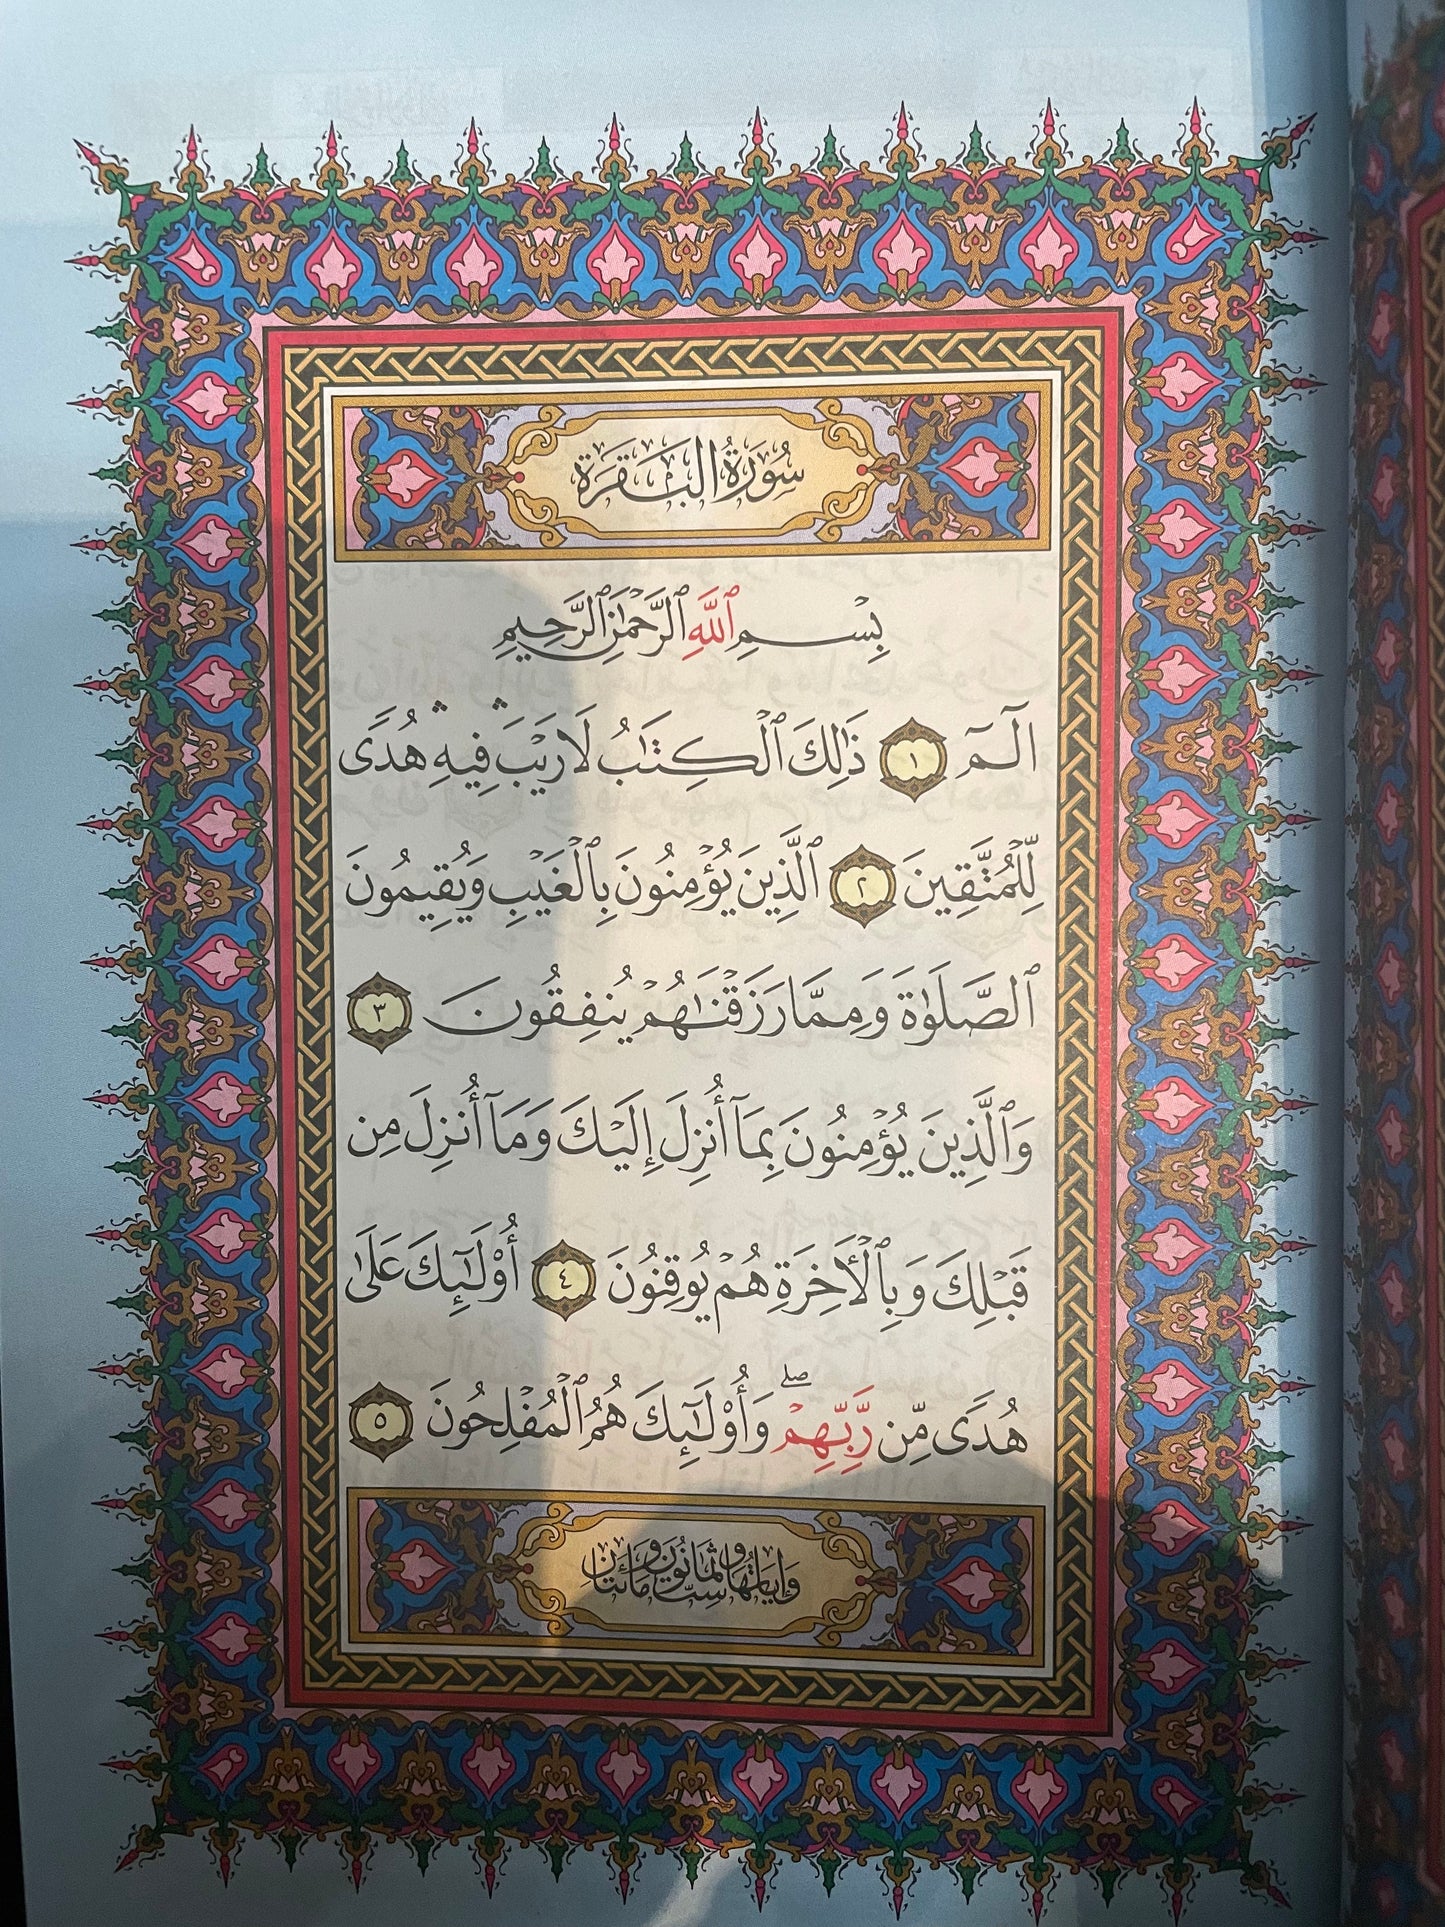 سُورَةُ البَقَرَةِ
بِسْمِ ٱللَّهِ ٱلرَّحْمَٰنِ ٱلرَّحِيمِ
الٓمٓ ١ ذَٰلِكَ ٱلْكِتَٰبُ لَا رَيْبَ ۛ فِيهِ ۛ هُدًى
لِّلْمُتَّقِينَ ٢ ٱلَّذِينَ يُؤْمِنُونَ بِٱلْغَيْبِ وَيُقِيمُونَ
ٱلصَّلَوٰةَ وَمِمَّا رَزَقْنَٰهُمْ يُنفِقُونَ ٣
وَٱلَّذِينَ يُؤْمِنُونَ بِمَآ أُنزِلَ إِلَيْكَ وَمَآ أُنزِلَ مِن
قَبْلِكَ وَبِٱلْأَخِرَةِ هُمْ يُوقِنُونَ ٤ أُوْلَٰٓئِكَ عَلَىٰ
هُدًى مِّن رَّبِّهِمْ ۖ وَأُوْلَٰٓئِكَ هُمُ ٱلْمُفْلِحُونَ ٥
وَاٰيَاتُهَا سِتٌّ وَثَمَانُونَ وَمِائَتَانِ